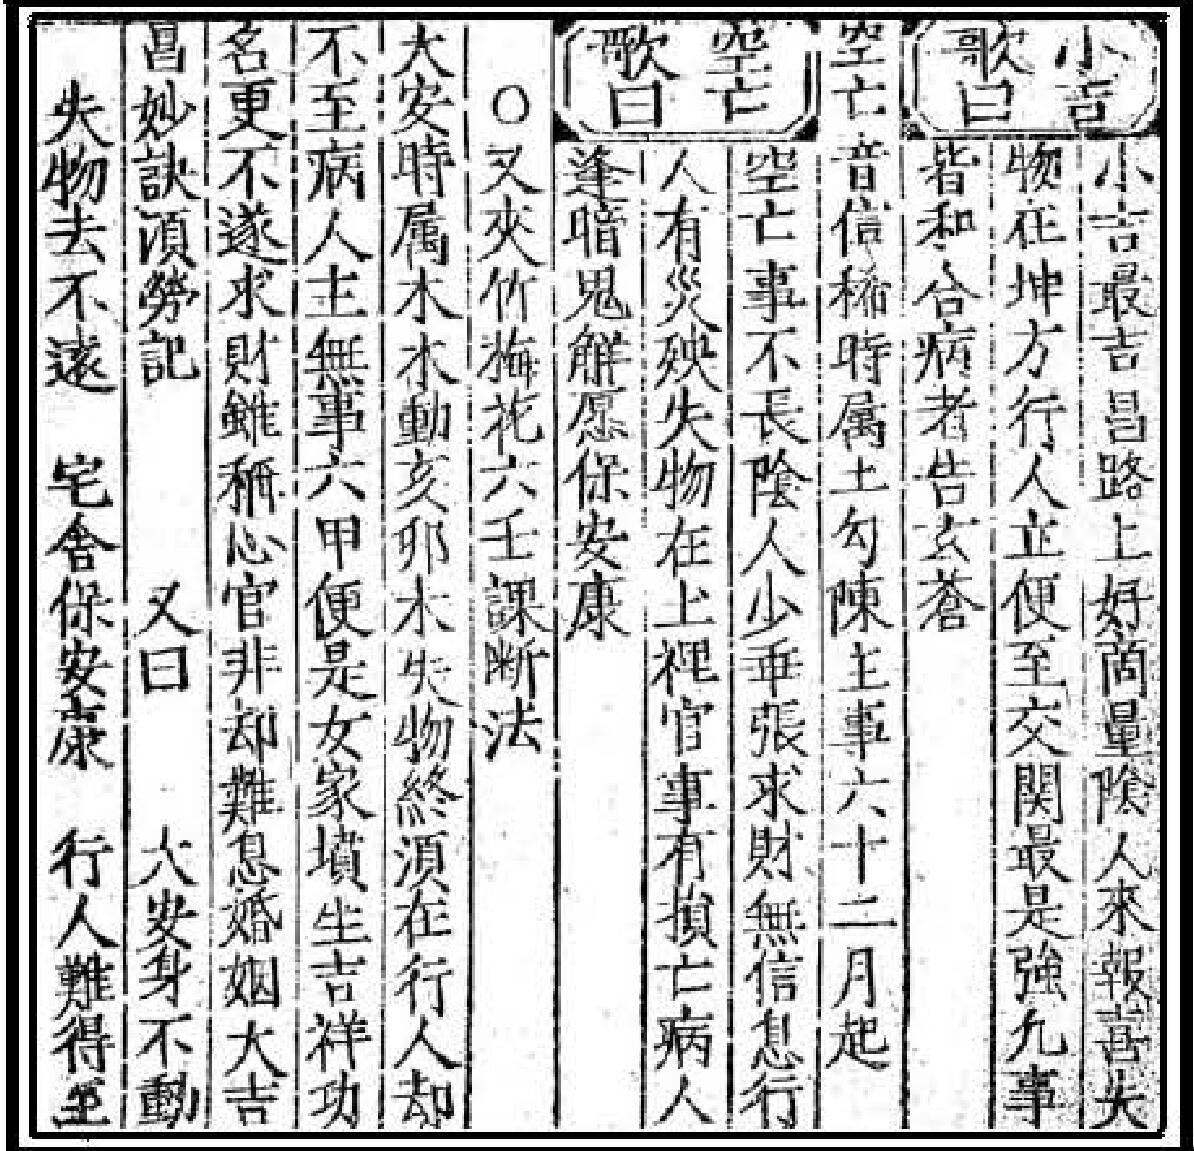 小吉
歌曰
小吉最吉昌路上好商量陰人來報喜失
物在坤方行人立便至交関最是強九事
皆和合病者告玄蒼
空亡音信稀時属土勾陳主事六十二月起
空亡
歌曰
空亡事不長陰人少乖張求財無信息行
人有災殃失物在上裡官事有損亡病人
逢暗鬼觧愿保安康
〇又夾竹梅花六壬課断法
大安時属木水動亥卯木失物終須在行人却
不至病人主無事六甲便是女家墳生吉祥功
名更不遂求財雖稱心官非却難息婚姻大吉
昌妙訣須勞記 又曰 大安身不動
失物去不遠 宅舍保安康 行人難得至